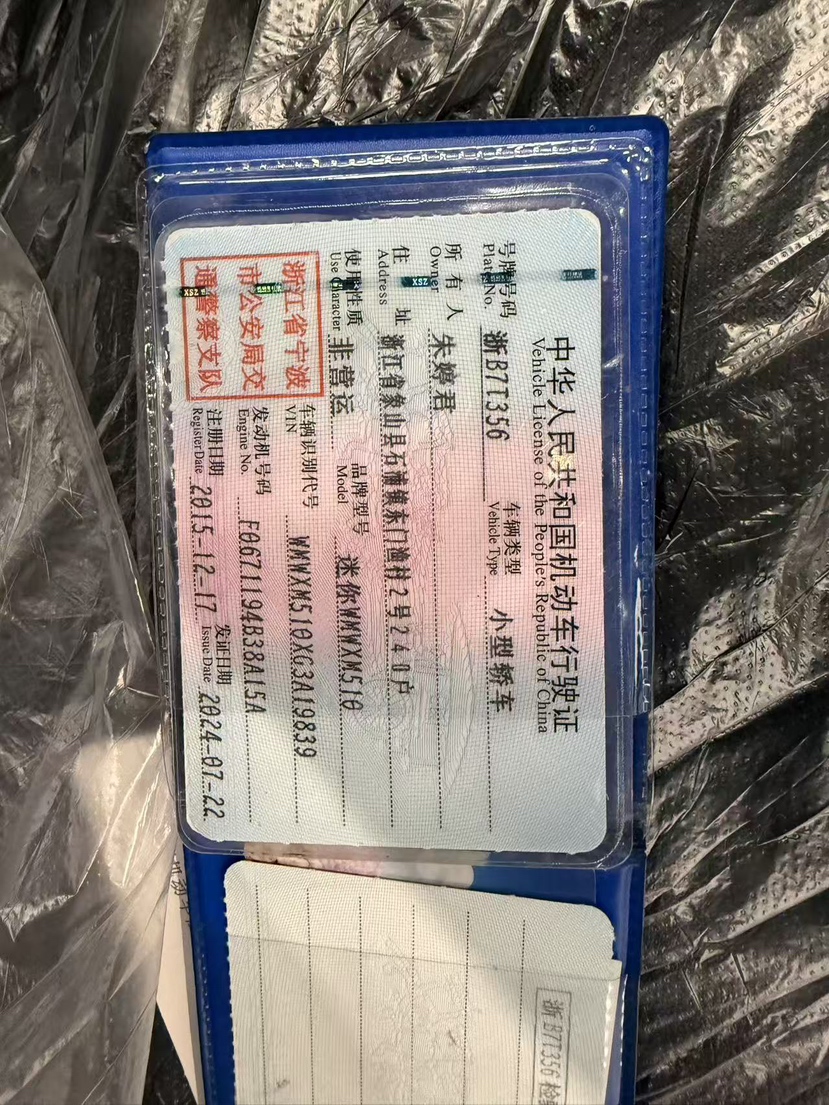 中华人民共和国机动车行驶证
Vehicle License of the People's Republic of China
号牌号码 浙B7T356 车辆类型 小型轿车
Plate No. Vehicle Type
所有人 朱婷君
Owner
住址 浙江省象山县石浦镇东门渔村2号240户
Address
使用性质 非营运 品牌型号 迷你WMWXM510
Use Character Model
浙江省宁波
市公安局交
通警察支队
车辆识别代号 WMWXM510XG3A19839
VIN
发动机号码 F0671194B38A15A
Engine No.
注册日期 2015-12-17 发证日期 2024-07-22
Register Date Issue Date
浙B7T356